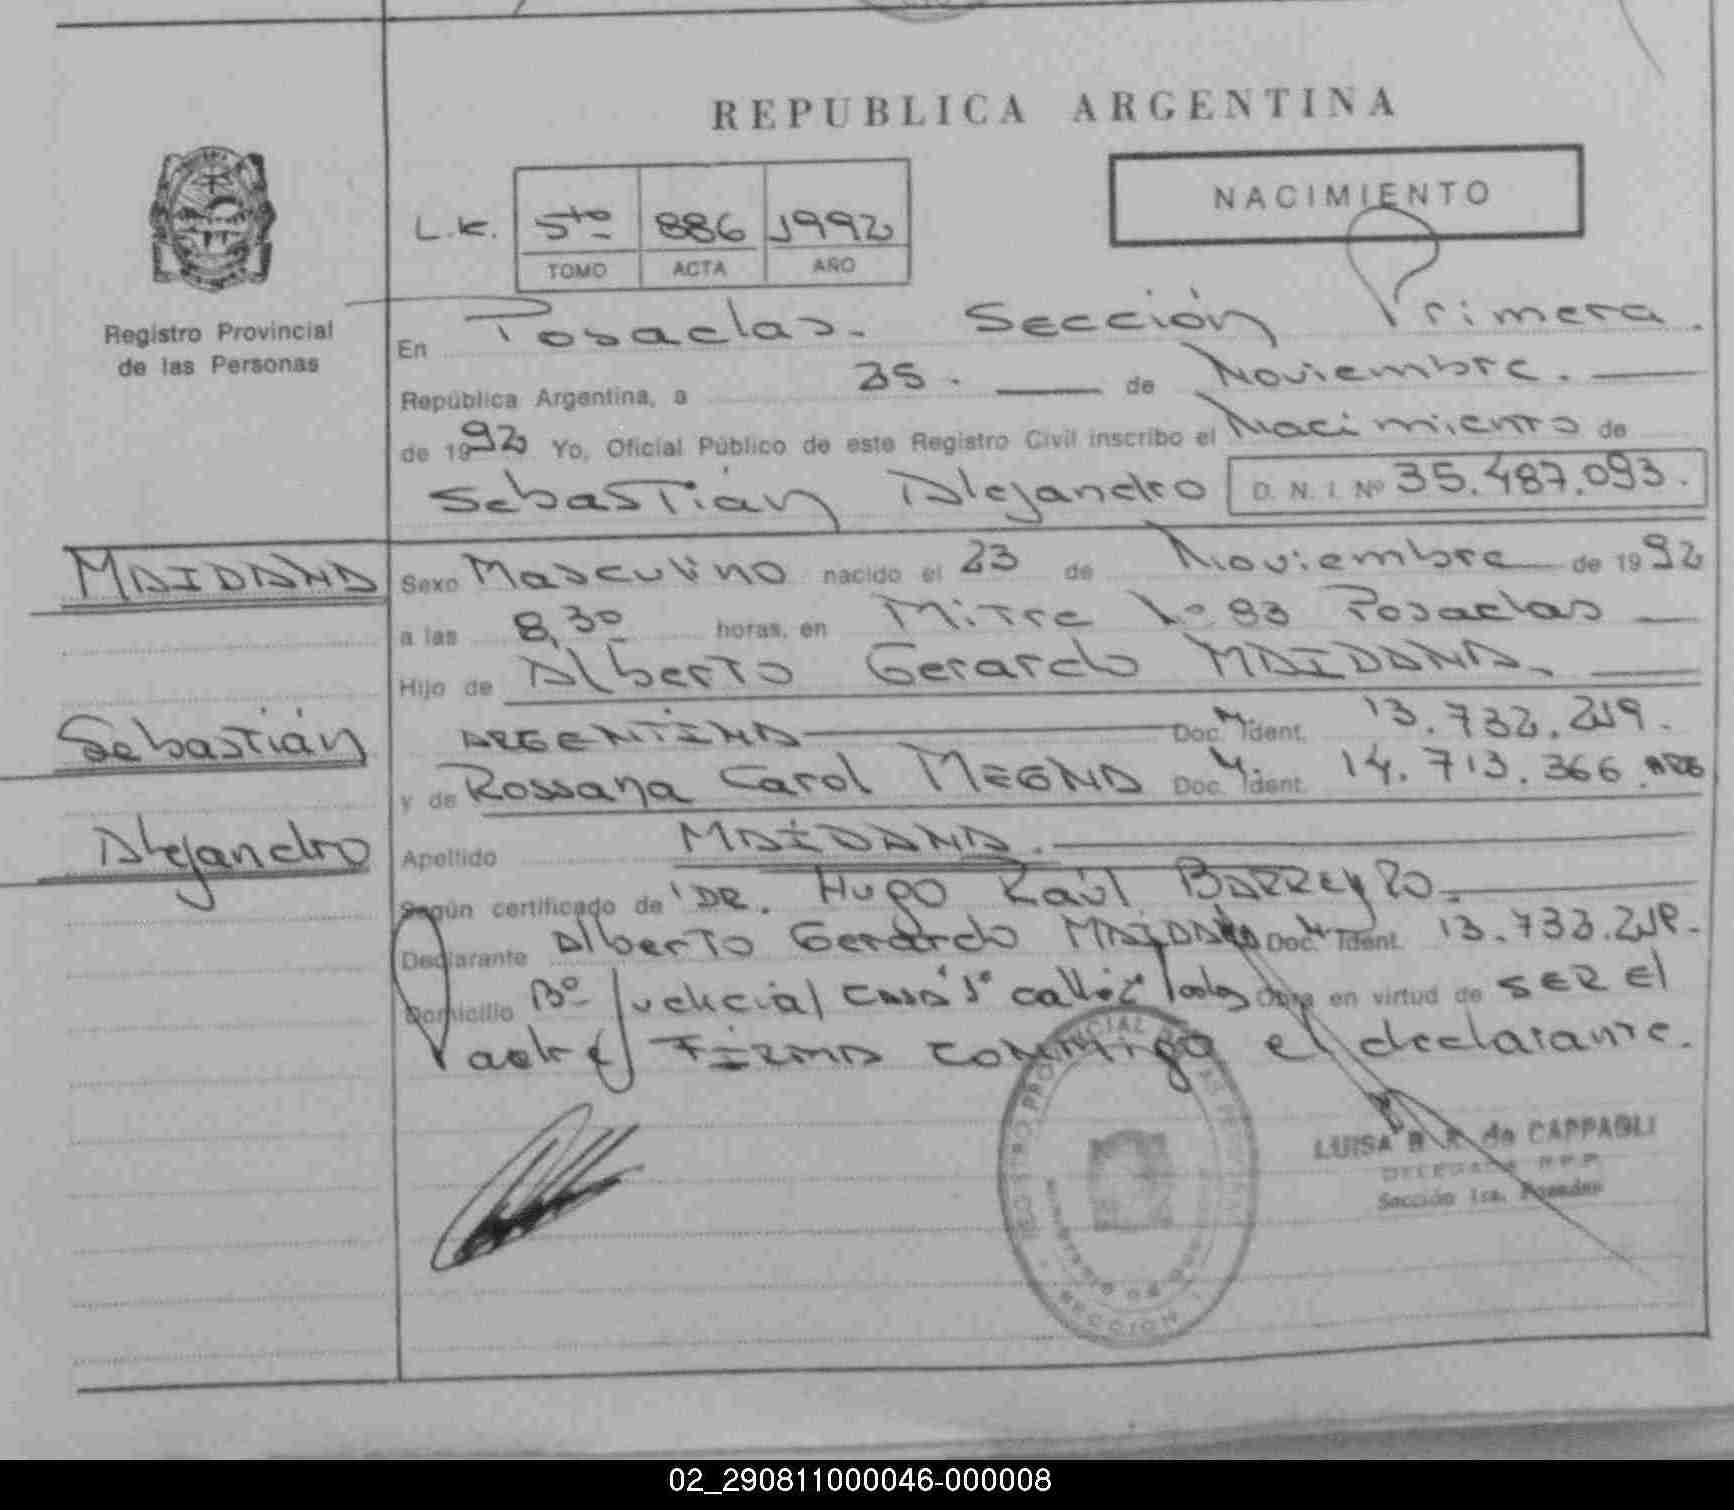 REPUBLICA ARGENTINA
NACIMIENTO
L.K. 5to 886 1992
TOMO ACTA AÑO
Registro Provincial
de las Personas
En Posadas. Sección Primera.
República Argentina, a 25. de Noviembre.
de 1992 Yo, Oficial Público de este Registro Civil inscribo el Nacimiento de
Sebastián Alejandro D. N. I. Nº 35.487.093.
MAIDANA
Sexo Masculino nacido el 23 de Noviembre de 1992
a las 8,30 horas, en Mitre 93 Posadas
Hijo de Alberto Gerardo MAIDANA.
Sebastián
ARGENTINA Doc. M. Ident. 13.732.219.
y de Rossana Carol MEGNA Doc. M. Ident. 14.713.366. ARG
Alejandro
Apellido MAIDANA.
Según certificado de DR. Hugo Raúl BARREYRO.
Declarante Alberto Gerardo MAIDANA Doc. M. Ident. 13.732.219.
Domicilio Bº Judicial CASA calle Obra en virtud de SER El
Padre FIRMA conmigo el declarante.
REGISTRO PROVINCIAL DE LAS PERSONAS
SECCION
LUISA B. de CAPPAGLI
DELEGADA R.P.P.
Sección 1ra. Posadas
02_290811000046-000008